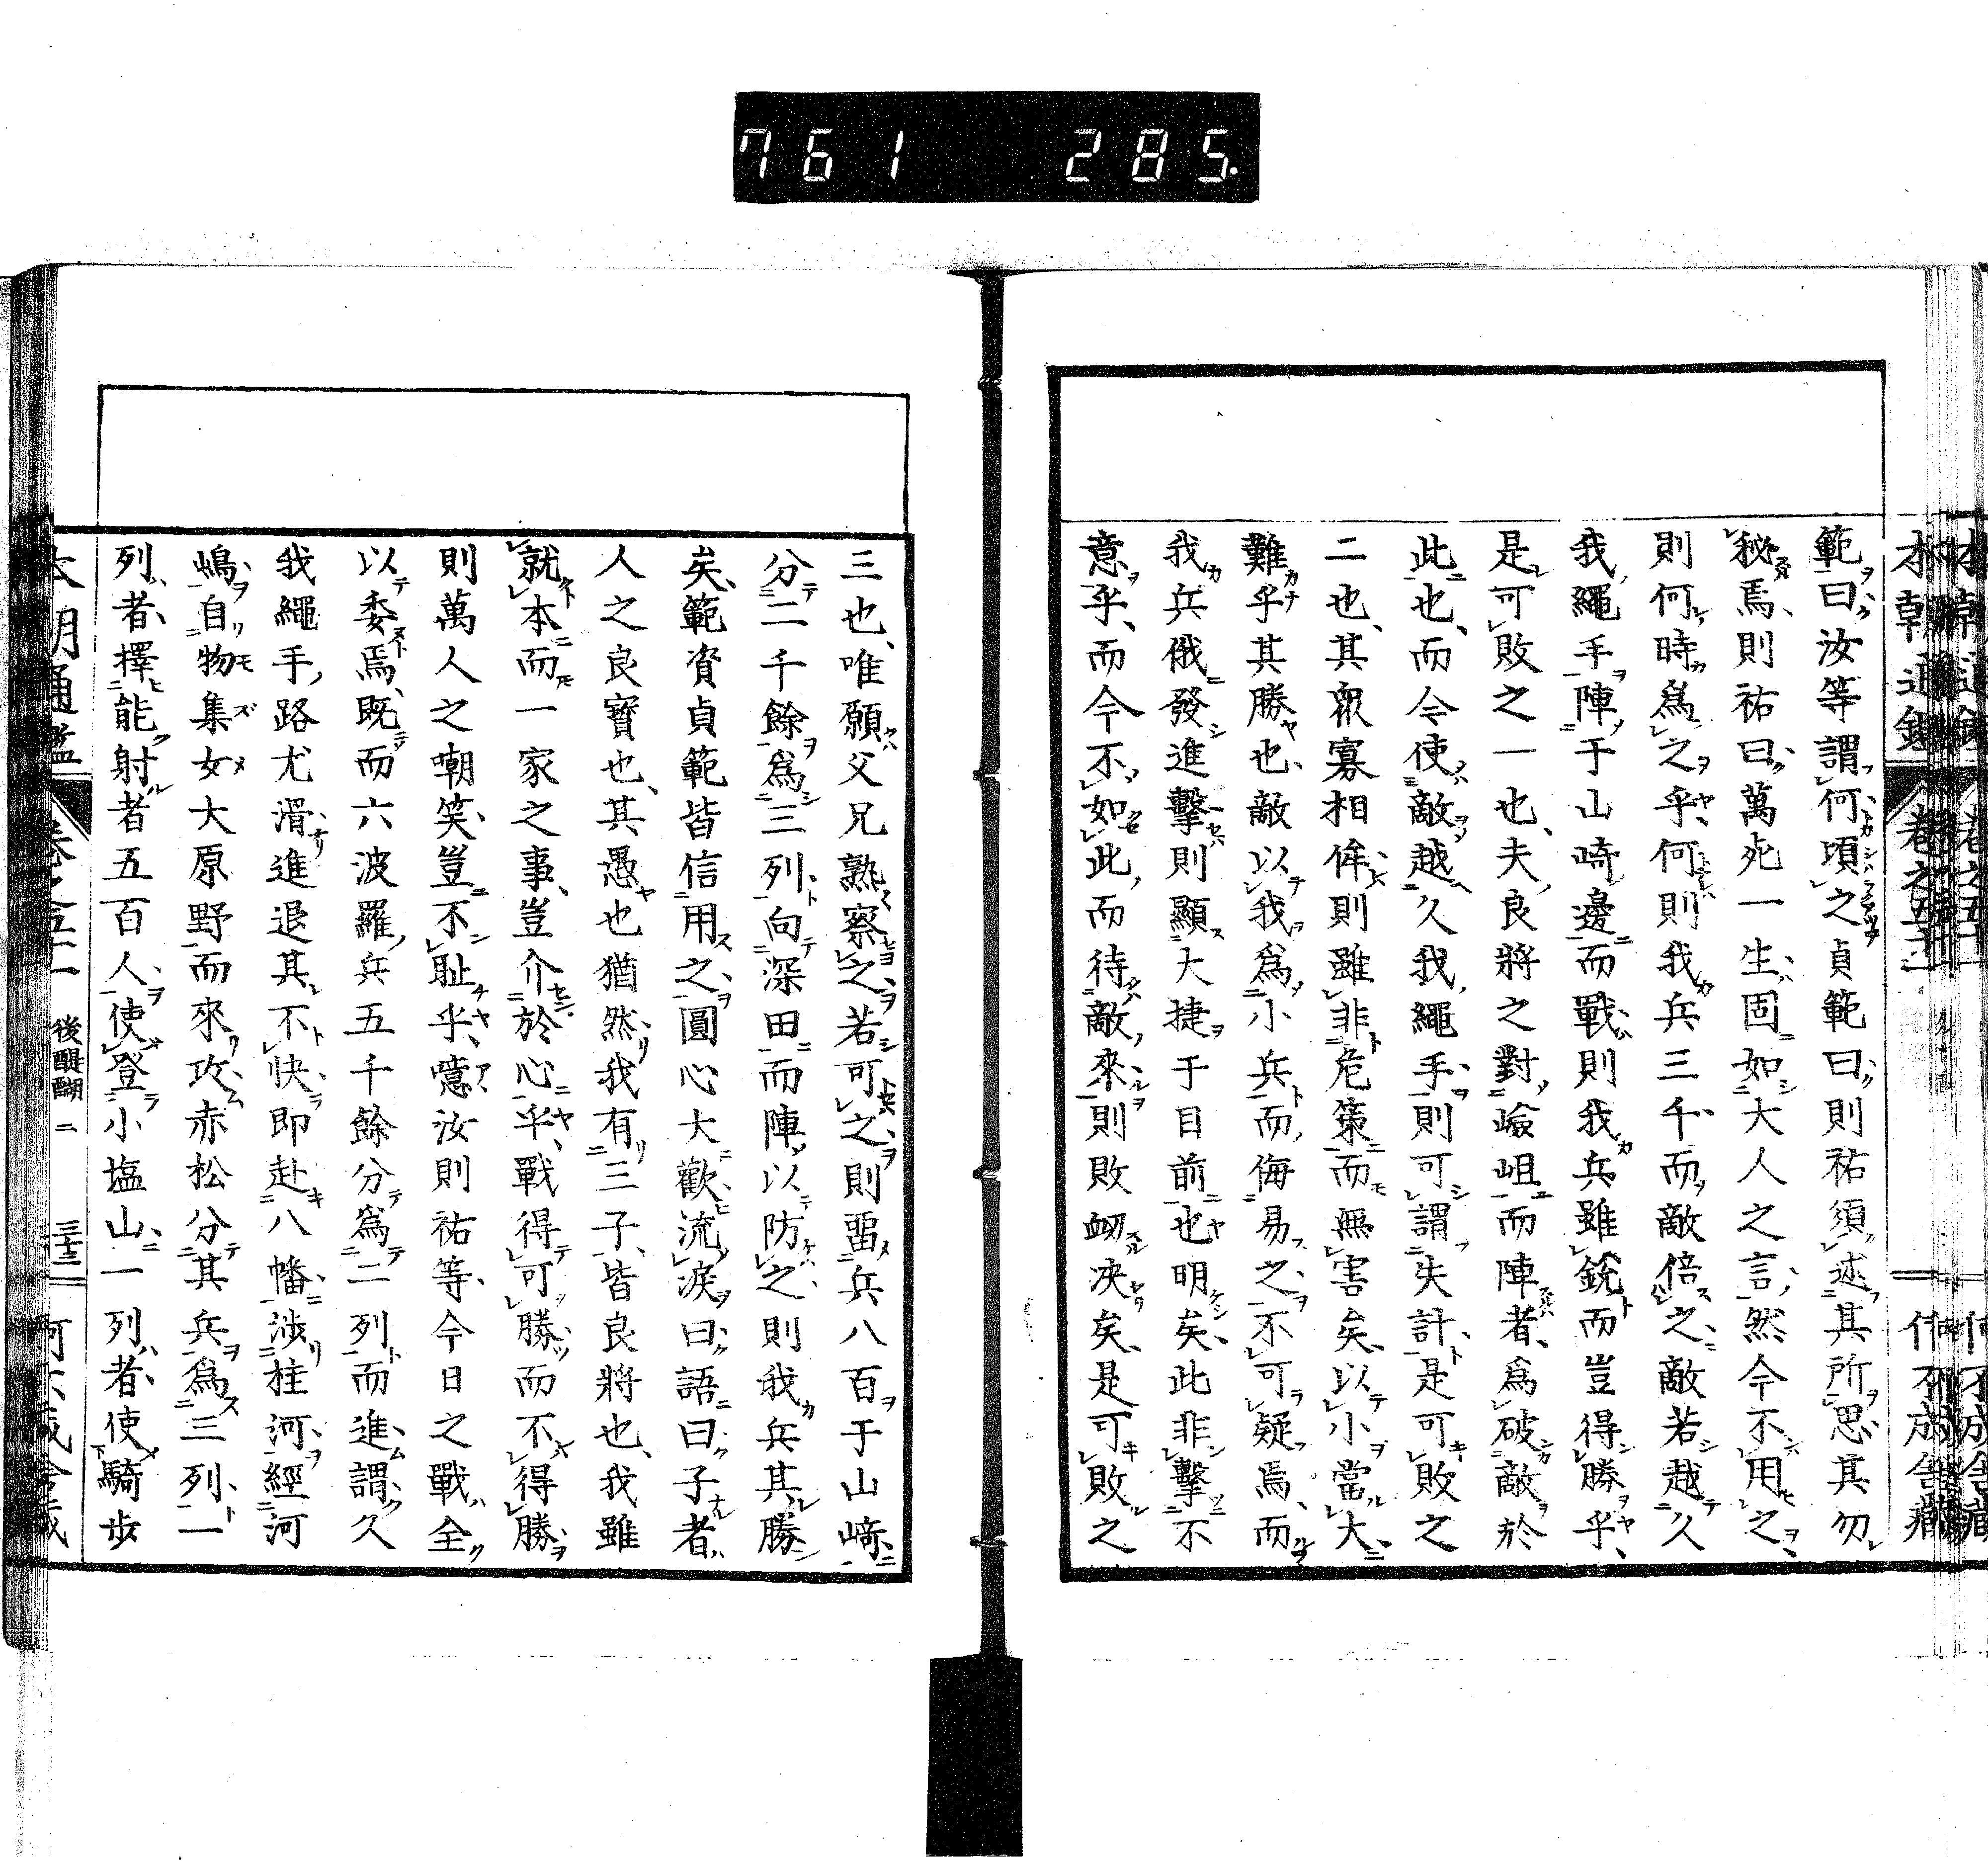 761 285.
本朝通鑑 卷之五十一 竹下成舍藏
範曰汝等謂何頃之貞範曰則祐須述其所思其勿
秘焉則祐曰萬死一生固如大人之言然今不用之
則何時爲之乎何則我兵三千而敵倍之敵若越久
我繩手陣于山崎邊而戰則我兵雖銳而豈得勝乎
是可敗之一也夫良將之對嶮岨而陣者爲破敵於
此也而令使敵越久我繩手則可謂失計是可敗之
二也其衆寡相侔則雖非危策而無害矣以小當大
難乎其勝也敵以我爲小兵而侮易之不可疑焉而
我兵俄發進擊則顯大捷于目前也明矣此非擊不
意乎而今不如此而待敵來則敗衂决矣是可敗之
三也唯願父兄熟察之若可之則畱兵八百于山崎
分二千餘爲三列向深田而陣以防之則我兵其勝
矣範資貞範皆信用之圓心大歡流淚曰語曰子者
人之良寶也其愚也猶然我有三子皆良將也我雖
就本而一家之事豈介於心乎戰得可勝而不得勝
則萬人之嘲笑豈不耻乎噫汝則祐等今日之戰全
以委焉既而六波羅兵五千餘分爲二列而進謂久
我繩手路尤滑進退其不快即赴八幡涉桂河經河
嶋自物集女大原野而來攻赤松分其兵爲三列一
列者擇能射者五百人使登小塩山一列者使騎步
本朝通鑑 卷之五十一 後醍醐二 三十三